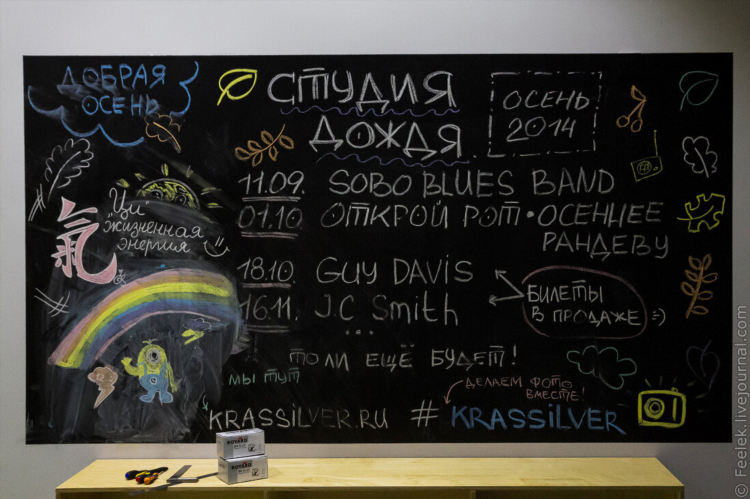 ДОБРАЯ
ОСЕНЬ
СТУДИЯ
ДОЖДЯ
ОСЕНЬ
2014
"Ци"
жизненная
энергия
氣
11.09. SOBO BLUES BAND
01.10 ОТКРОЙ РОТ • ОСЕННЕЕ
РАНДЕВУ
18.10. GUY DAVIS
16.11. J.C Smith
...
БИЛЕТЫ
В ПРОДАЖЕ :-)
ТО ЛИ ЕЩЁ БУДЕТ!
МЫ ТУТ
ДЕЛАЕМ ФОТО
ВМЕСТЕ!
KRASSILVER.RU # KRASSILVER
© Feelek.livejournal.com